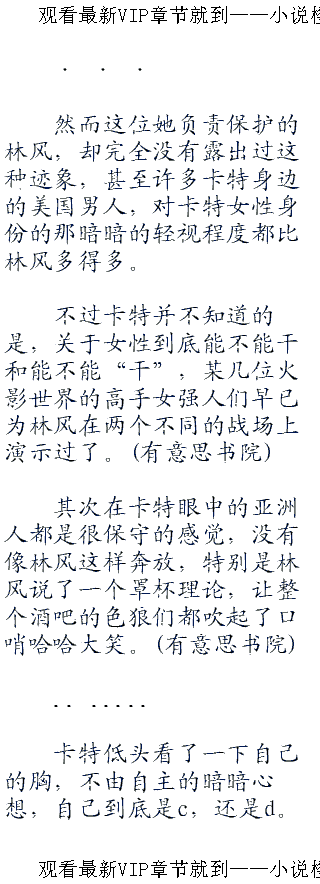 观看最新VIP章节就到——小说检
. . .
然而这位她负责保护的
林风，却完全没有露出过这
种迹象，甚至许多卡特身边
的美国男人，对卡特女性身
份的那暗暗的轻视程度都比
林风多得多。
不过卡特并不知道的
是，关于女性到底能不能干
和能不能“干”，某几位火
影世界的高手女强人们早已
为林风在两个不同的战场上
演示过了。(有意思书院)
其次在卡特眼中的亚洲
人都是很保守的感觉，没有
像林风这样奔放，特别是林
风说了一个罩杯理论，让整
个酒吧的色狼们都吹起了口
哨哈哈大笑。(有意思书院)
.. .....
卡特低头看了一下自己
的胸，不由自主的暗暗心
想，自己到底是c，还是d。
观看最新VIP章节就到——小说检